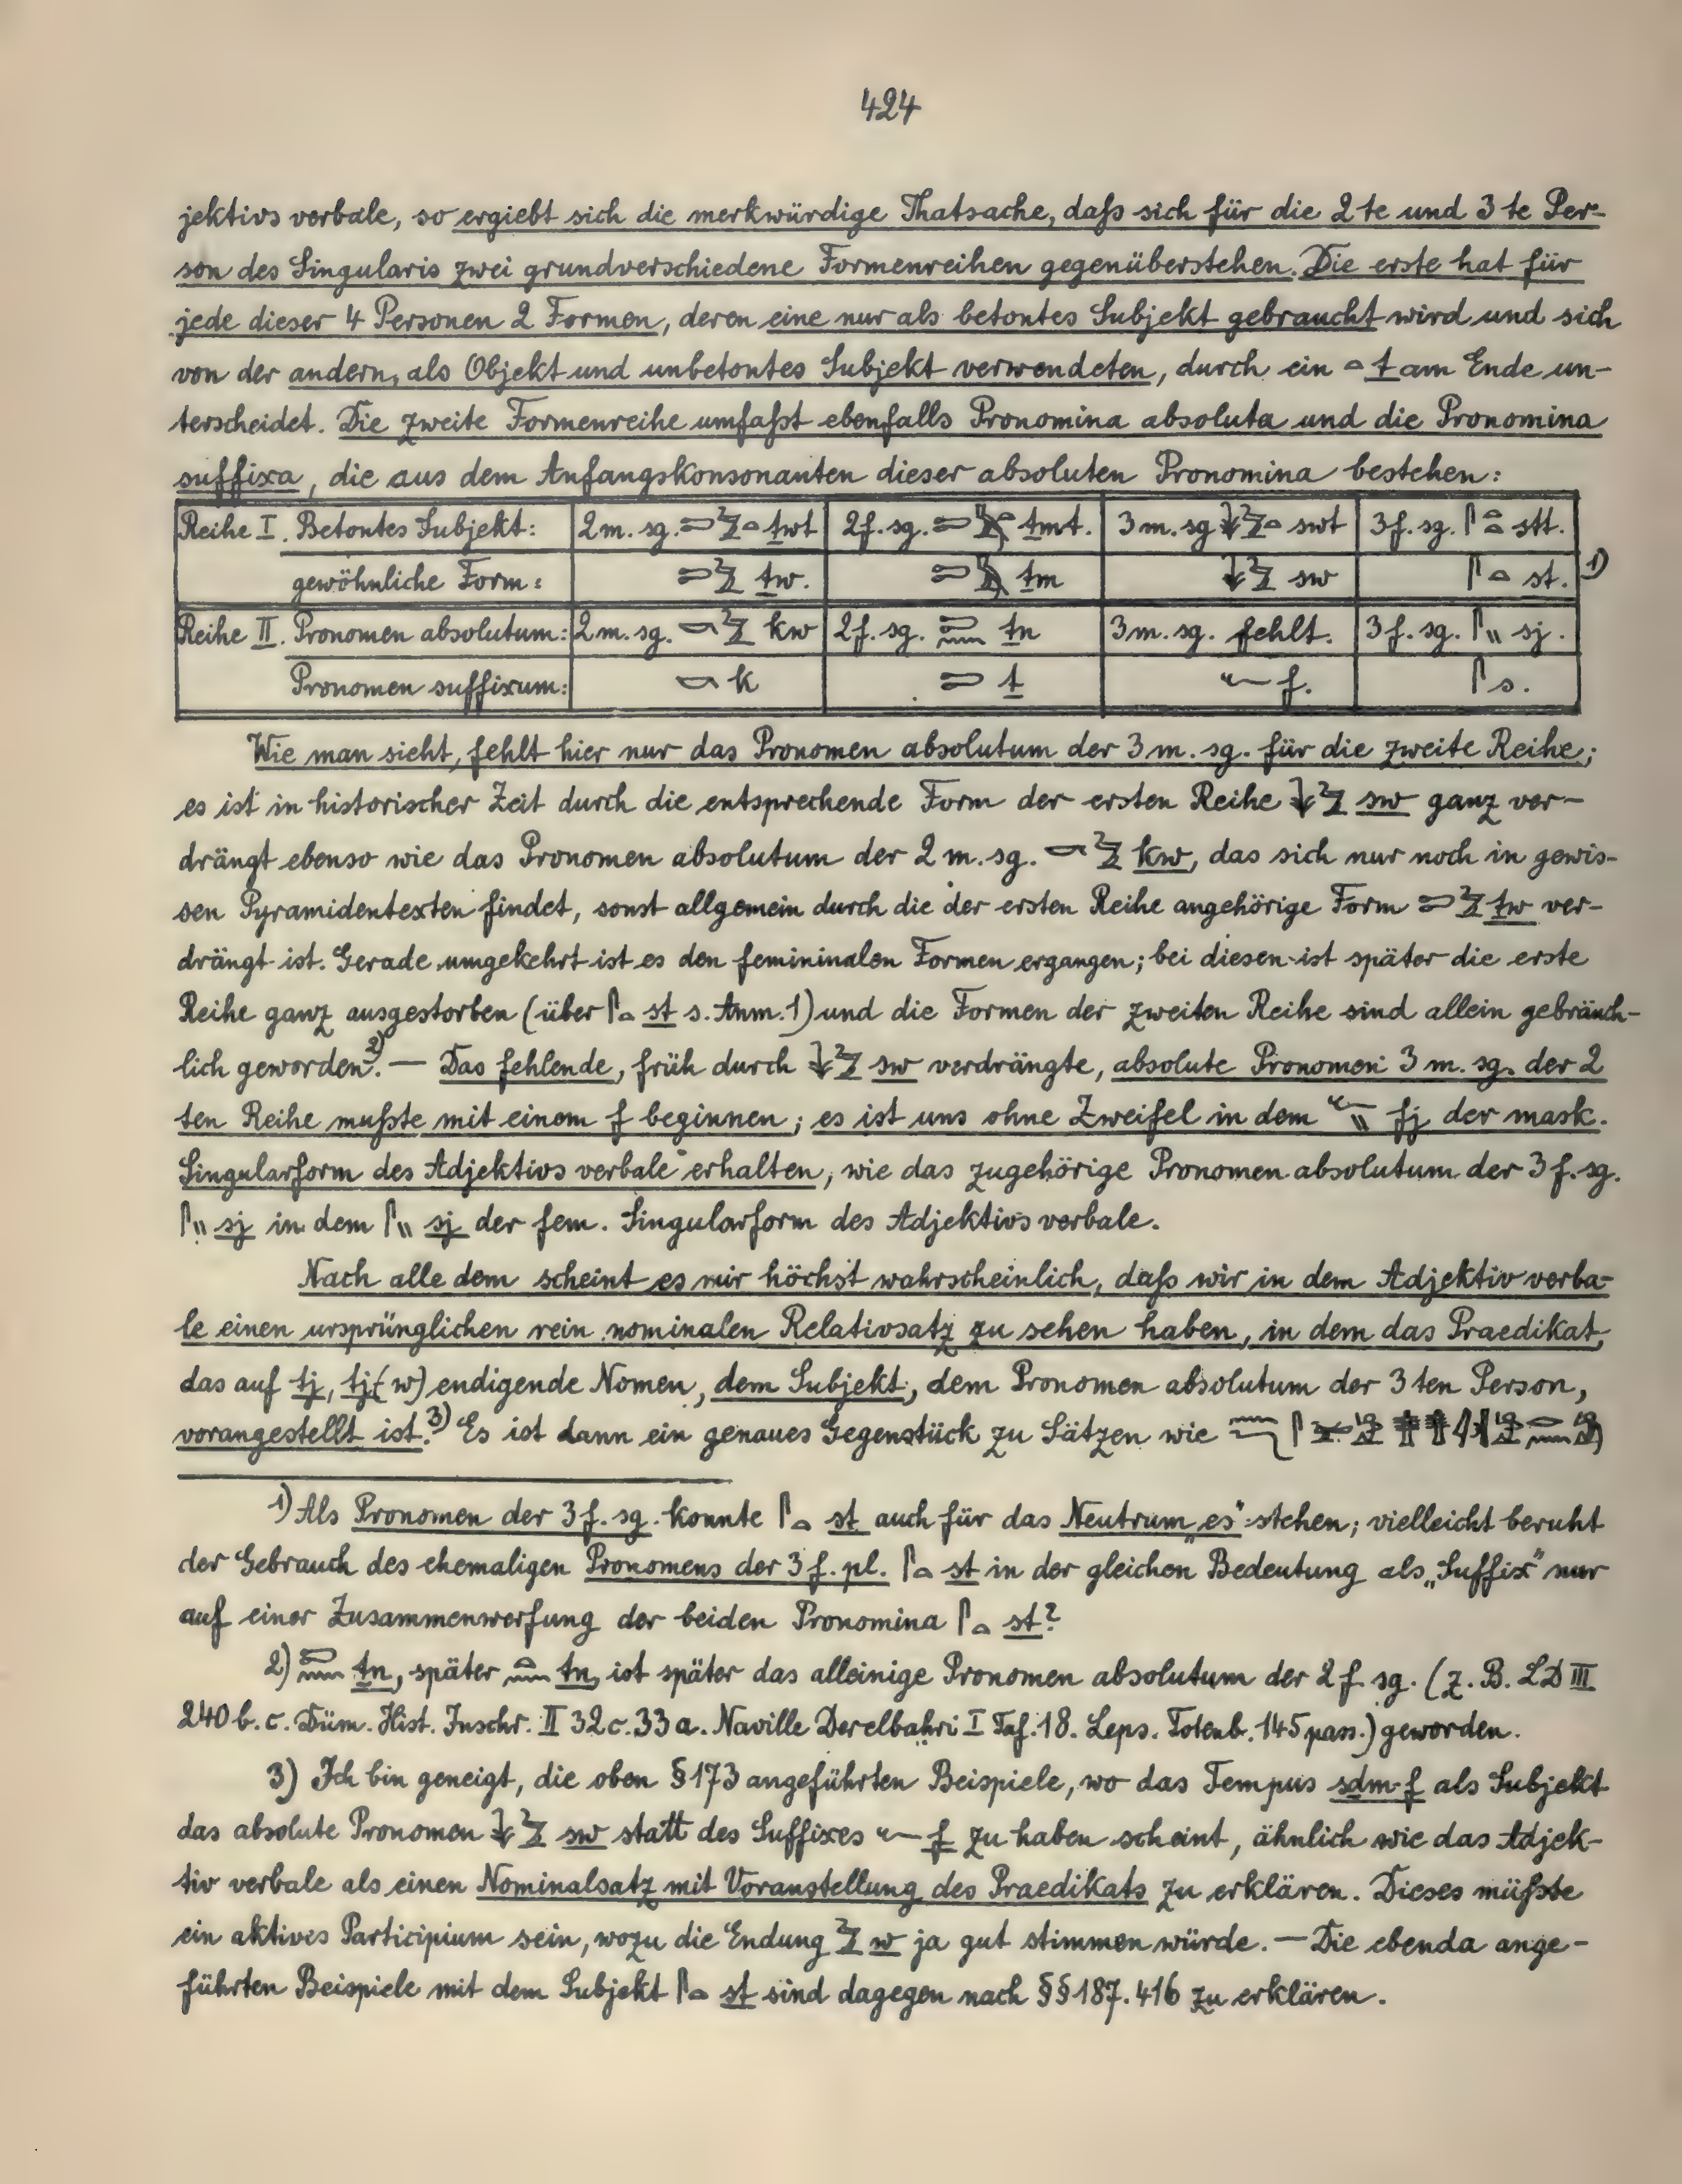 424
jektivs verbale, so ergiebt sich die merkwürdige Thatsache, daß sich für die 2te und 3te Per-
son des Singularis zwei grundverschiedene Formenreihen gegenüberstehen. Die erste hat für
jede dieser 4 Personen 2 Formen, deren eine nur als betontes Subjekt gebraucht wird und sich
von der andern, als Objekt und unbetontes Subjekt verwendeten, durch ein 𓏏 t am Ende un-
terscheidet. Die zweite Formenreihe umfaßt ebenfalls Pronomina absoluta und die Pronomina
suffixa, die aus dem Anfangskonsonanten dieser absoluten Pronomina bestehen:
Reihe I. Betontes Subjekt: 2 m. sg. 𓍿𓅱𓏏 ṯwt 2 f. sg. 𓍿𓅓𓏏 ṯmt. 3 m. sg 𓇓𓅱𓏏 swt 3 f. sg. 𓋴𓏏𓏏 stt.
gewöhnliche Form: 𓍿𓅱 ṯw. 𓍿𓅓 ṯm 𓇓𓅱 sw 𓋴𓏏 st. 1)
Reihe II. Pronomen absolutum: 2 m. sg. 𓎡𓅱 kw 2 f. sg. 𓍿𓈖 ṯn 3 m. sg. fehlt. 3 f. sg. 𓋴𓏭 sj.
Pronomen suffixum: 𓎡 k 𓍿 ṯ 𓆑 f. 𓋴 s.
Wie man sieht, fehlt hier nur das Pronomen absolutum der 3 m. sg. für die zweite Reihe;
es ist in historischer Zeit durch die entsprechende Form der ersten Reihe 𓇓𓅱 sw ganz ver-
drängt ebenso wie das Pronomen absolutum der 2 m. sg. 𓎡𓅱 kw, das sich nur noch in gewis-
sen Pyramidentexten findet, sonst allgemein durch die der ersten Reihe angehörige Form 𓍿𓅱 ṯw ver-
drängt ist. Gerade umgekehrt ist es den femininalen Formen ergangen; bei diesen ist später die erste
Reihe ganz ausgestorben (über 𓋴𓏏 st s. Anm. 1) und die Formen der zweiten Reihe sind allein gebräuch-
lich geworden.2) — Das fehlende, früh durch 𓇓𓅱 sw verdrängte, absolute Pronomen 3 m. sg. der 2
ten Reihe mußte mit einem f beginnen; es ist uns ohne Zweifel in dem 𓆑𓏭 fj der mask.
Singularform des Adjektivs verbale erhalten, wie das zugehörige Pronomen absolutum der 3 f. sg.
𓋴𓏭 sj in dem 𓋴𓏭 sj der fem. Singularform des Adjektivs verbale.
Nach alle dem scheint es mir höchst wahrscheinlich, daß wir in dem Adjektiv verba-
le einen ursprünglichen rein nominalen Relativsatz zu sehen haben, in dem das Praedikat,
das auf tj, tj(w) endigende Nomen, dem Subjekt, dem Pronomen absolutum der 3ten Person,
vorangestellt ist.3) Es ist dann ein genaues Gegenstück zu Sätzen wie
1) Als Pronomen der 3 f. sg. konnte 𓋴𓏏 st auch für das Neutrum „es“ stehen; vielleicht beruht
der Gebrauch des ehemaligen Pronomens der 3 f. pl. 𓋴𓏏 st in der gleichen Bedeutung als „Suffix“ nur
auf einer Zusammenwerfung der beiden Pronomina 𓋴𓏏 st?
2) 𓍿𓈖 ṯn, später 𓏏𓈖 tn, ist später das alleinige Pronomen absolutum der 2 f. sg. (z. B. LD III
240 b. c. Düm. Hist. Inschr. II 32c. 33a. Naville Derelbahri I Taf. 18. Leps. Totenb. 145 pass.) geworden.
3) Ich bin geneigt, die oben § 173 angeführten Beispiele, wo das Tempus sḏm·f als Subjekt
das absolute Pronomen 𓇓𓅱 sw statt des Suffixes 𓆑 f zu haben scheint, ähnlich wie das Adjek-
tiv verbale als einen Nominalsatz mit Voranstellung des Praedikats zu erklären. Dieses müßte
ein aktives Participium sein, wozu die Endung 𓅱 w ja gut stimmen würde. — Die ebenda ange-
führten Beispiele mit dem Subjekt 𓋴𓏏 st sind dagegen nach §§ 187. 416 zu erklären.